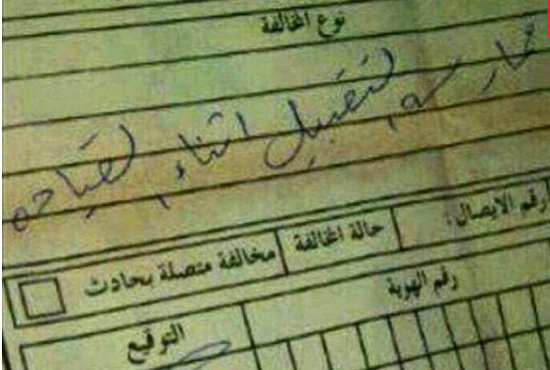 نوع المخالفة
ممارسة التقبيل اثناء القيادة
رقم الايصال :
حالة المخالفة
مخالفة متصلة بحادث
رقم الهوية
التوقيع